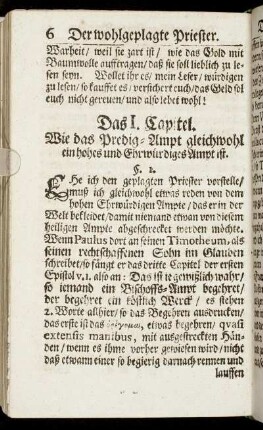 6 Der wohlgeplagte Priester.
Warheit / weil sie zart ist / wie das Gold mit
Baumwolle aufftragen / daß sie soll lieblich zu le-
sen seyn. Wollet ihr es / mein Leser / würdigen
zu lesen / so kauffet es / versichert euch / das Geld sol
euch nicht gereuen / und also lebet wohl!
Das I. Capitel.
Wie das Predig-Ampt gleichwohl
ein hohes und Ehrwürdiges Ampt ist.
§. 1.
EHe ich den geplagten Priester vorstelle /
muß ich gleichwohl etwas reden von dem
hohen Ehrwürdigen Ampte / das er in der
Welt bekleidet / damit niemand etwan von diesem
heiligen Ampte abgeschrecket werden möchte.
Wenn Paulus dort an seinen Timotheum, als
seinen rechtschaffenen Sohn im Glauben
schreibet / so fänget er das dritte Capitel der ersten
Epistol v. 1. also an: Das ist je gewißlich wahr /
so iemand ein Bischoffs-Ampt begehret /
der begehret ein köstlich Werck / es stehen
2. Worte allhier / so das Begehren ausdrucken /
das erste ist das etwas begehren / quasi
extensis manibus, mit ausgestreckten Hän-
den / wenn es ihme vorher gewiesen wird / nicht
daß etwann einer so begierig darnach rennen und
lauffen